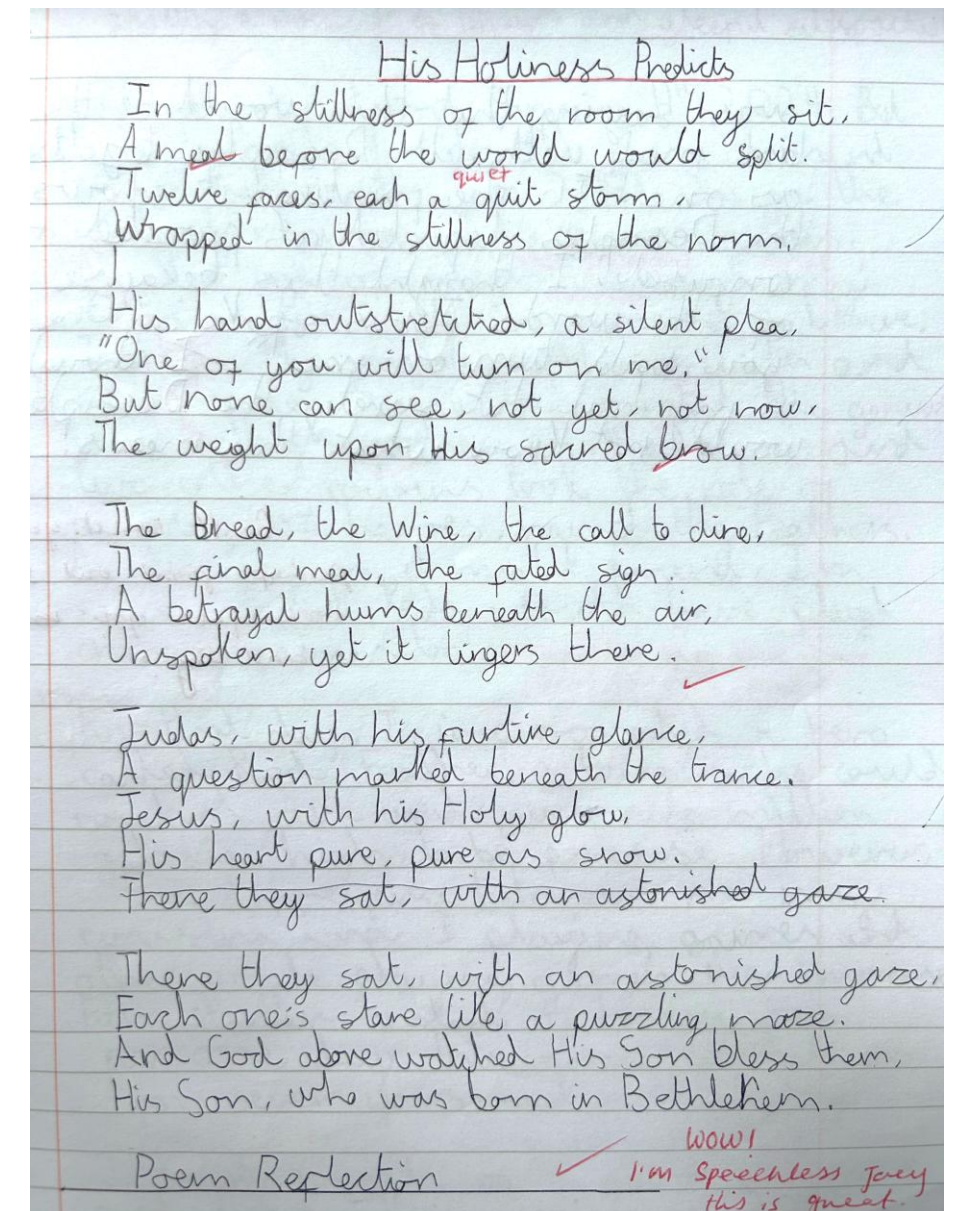 His Holiness Predicts
In the stillness of the room they sit,
A meal before the world would split.
quiet
Twelve faces, each a quit storm,
Wrapped in the stillness of the norm.
His hand outstretched, a silent plea,
"One of you will turn on me."
But none can see, not yet, not now,
The weight upon His sacred brow.
The Bread, the Wine, the call to dine,
The final meal, the fated sign.
A betrayal hums beneath the air,
Unspoken, yet it lingers there.
Judas, with his furtive glance,
A question marked beneath the trance.
Jesus, with his Holy glow,
His heart pure, pure as snow.
There they sat, with an astonished gaze
There they sat, with an astonished gaze,
Each one's stare like a puzzling maze.
And God above watched His Son bless them,
His Son, who was born in Bethlehem.
WOW!
Poem Reflection
I'm speechless Joey
this is great.